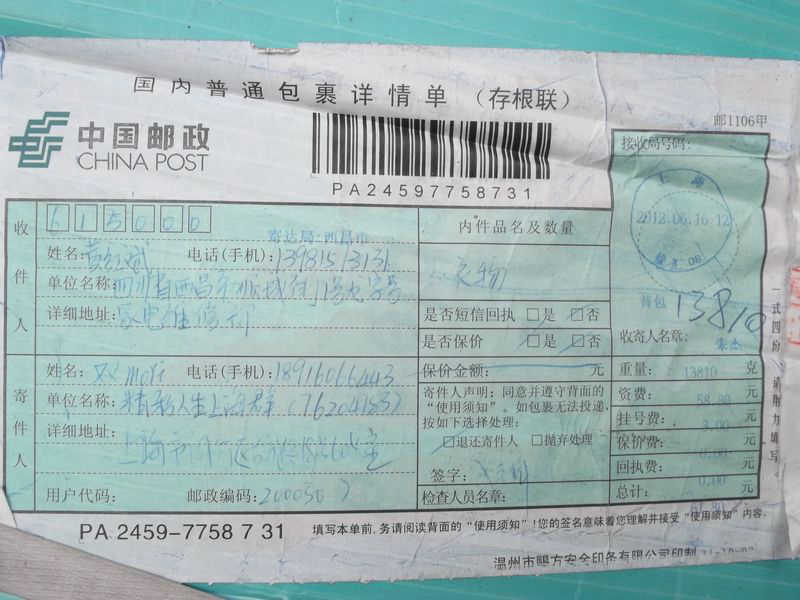 国内普通包裹详情单 (存根联)
邮1106甲
中国邮政
CHINA POST
PA24597758731
接收局号码:
上海
2012.06.16.12
收件人
615000
寄达局:西昌市
内件品名及数量
姓名: 电话(手机):
衣物
单位名称:四川省西昌市
详细地址:家电维修
是否短信回执 □是 □否
是否保价 □是 □否
13810
收寄人名章:
朱杰
寄件人
姓名: 电话(手机):18916066443
保价金额: 元
重量: 13810 克
单位名称:精彩人生上海群(76204183)
寄件人声明:同意并遵守背面的
“使用须知”。如包裹无法投递,
按如下选择处理:
资费: 元
挂号费: 3.00 元
详细地址:
上海市
□退还寄件人 □抛弃处理
保价费: 0.00 元
签字:
回执费: 0.00 元
用户代码: 邮政编码:200030
检查人员名章:
总计: 元
一式四份 请用力填写
PA 2459-7758 7 31
填写本单前,务请阅读背面的“使用须知”!您的签名意味着您理解并接受“使用须知”内容。
温州市赐方安全印务有限公司印制